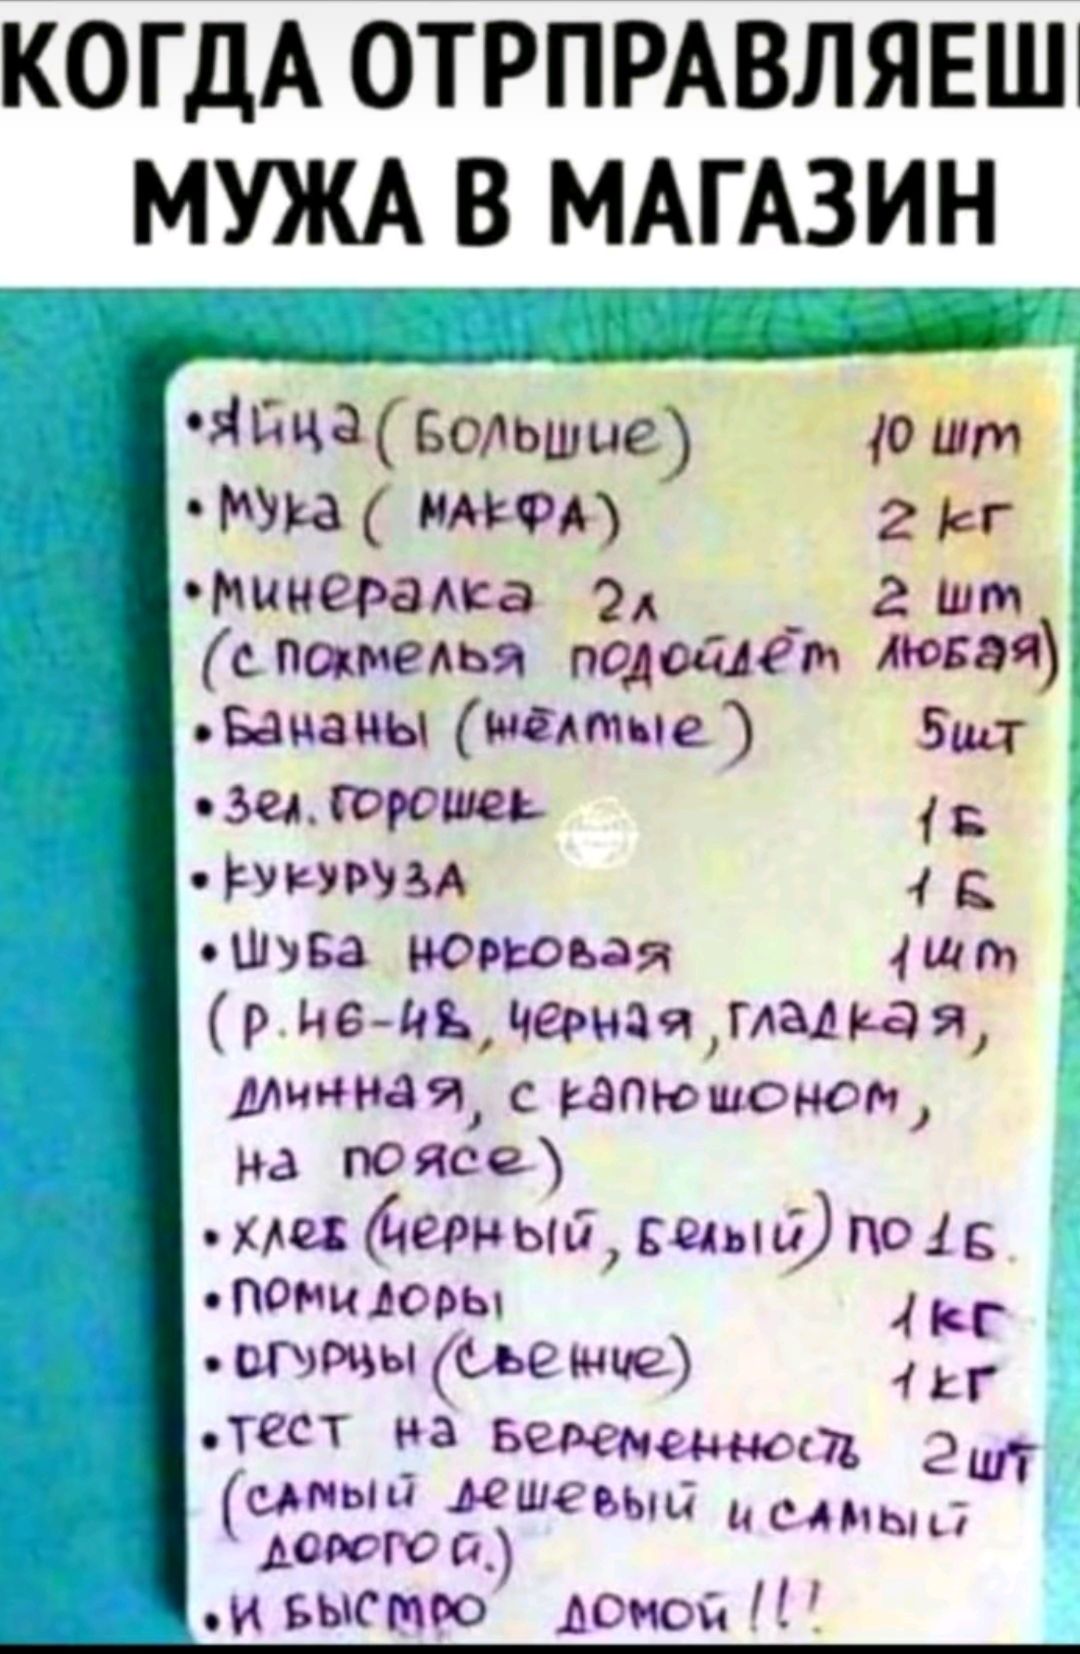 КОГДА ОТРПРАВЛЯЕШ
МУЖА В МАГАЗИН
•Яйца (Большие) 10 шт
•Мука (МАКФА) 2 кг
•Минералка 2л 2 шт
(с похмелья подойдёт любая)
•Бананы (жёлтые) 5шт
•Зел. горошек 1Б
•кукуруза 1Б
•Шуба норковая 1шт
(р.46-48, черная, гладкая,
длинная, с капюшоном,
на поясе)
•хлеб (черный, белый) по 1Б.
•помидоры 1кг
•огурцы (свежие) 1кг
•тест на беременность 2шт
(самый дешевый и самый
дорогой.)
•И быстро домой!!!